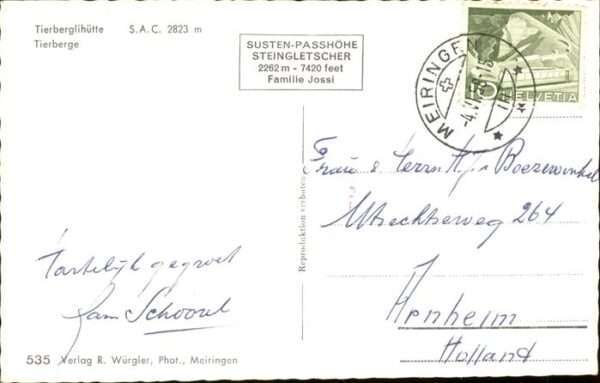 Tierberglihütte S.A.C. 2823 m
Tierberge
SUSTEN-PASSHÖHE
STEINGLETSCHER
2262 m - 7420 feet
Familie Jossi
MEIRINGEN
HELVETIA
Frau & Herrn H. v Boezewinkel
Utrechtseweg 264
Arnheim
Holland
Hartelijk gegroet
fam Schoorel
Reproduktion verboten
535 Verlag R. Würgler, Phot., Meiringen